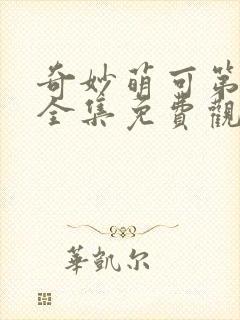 奇妙萌可第
全集免費觀
華凱尔